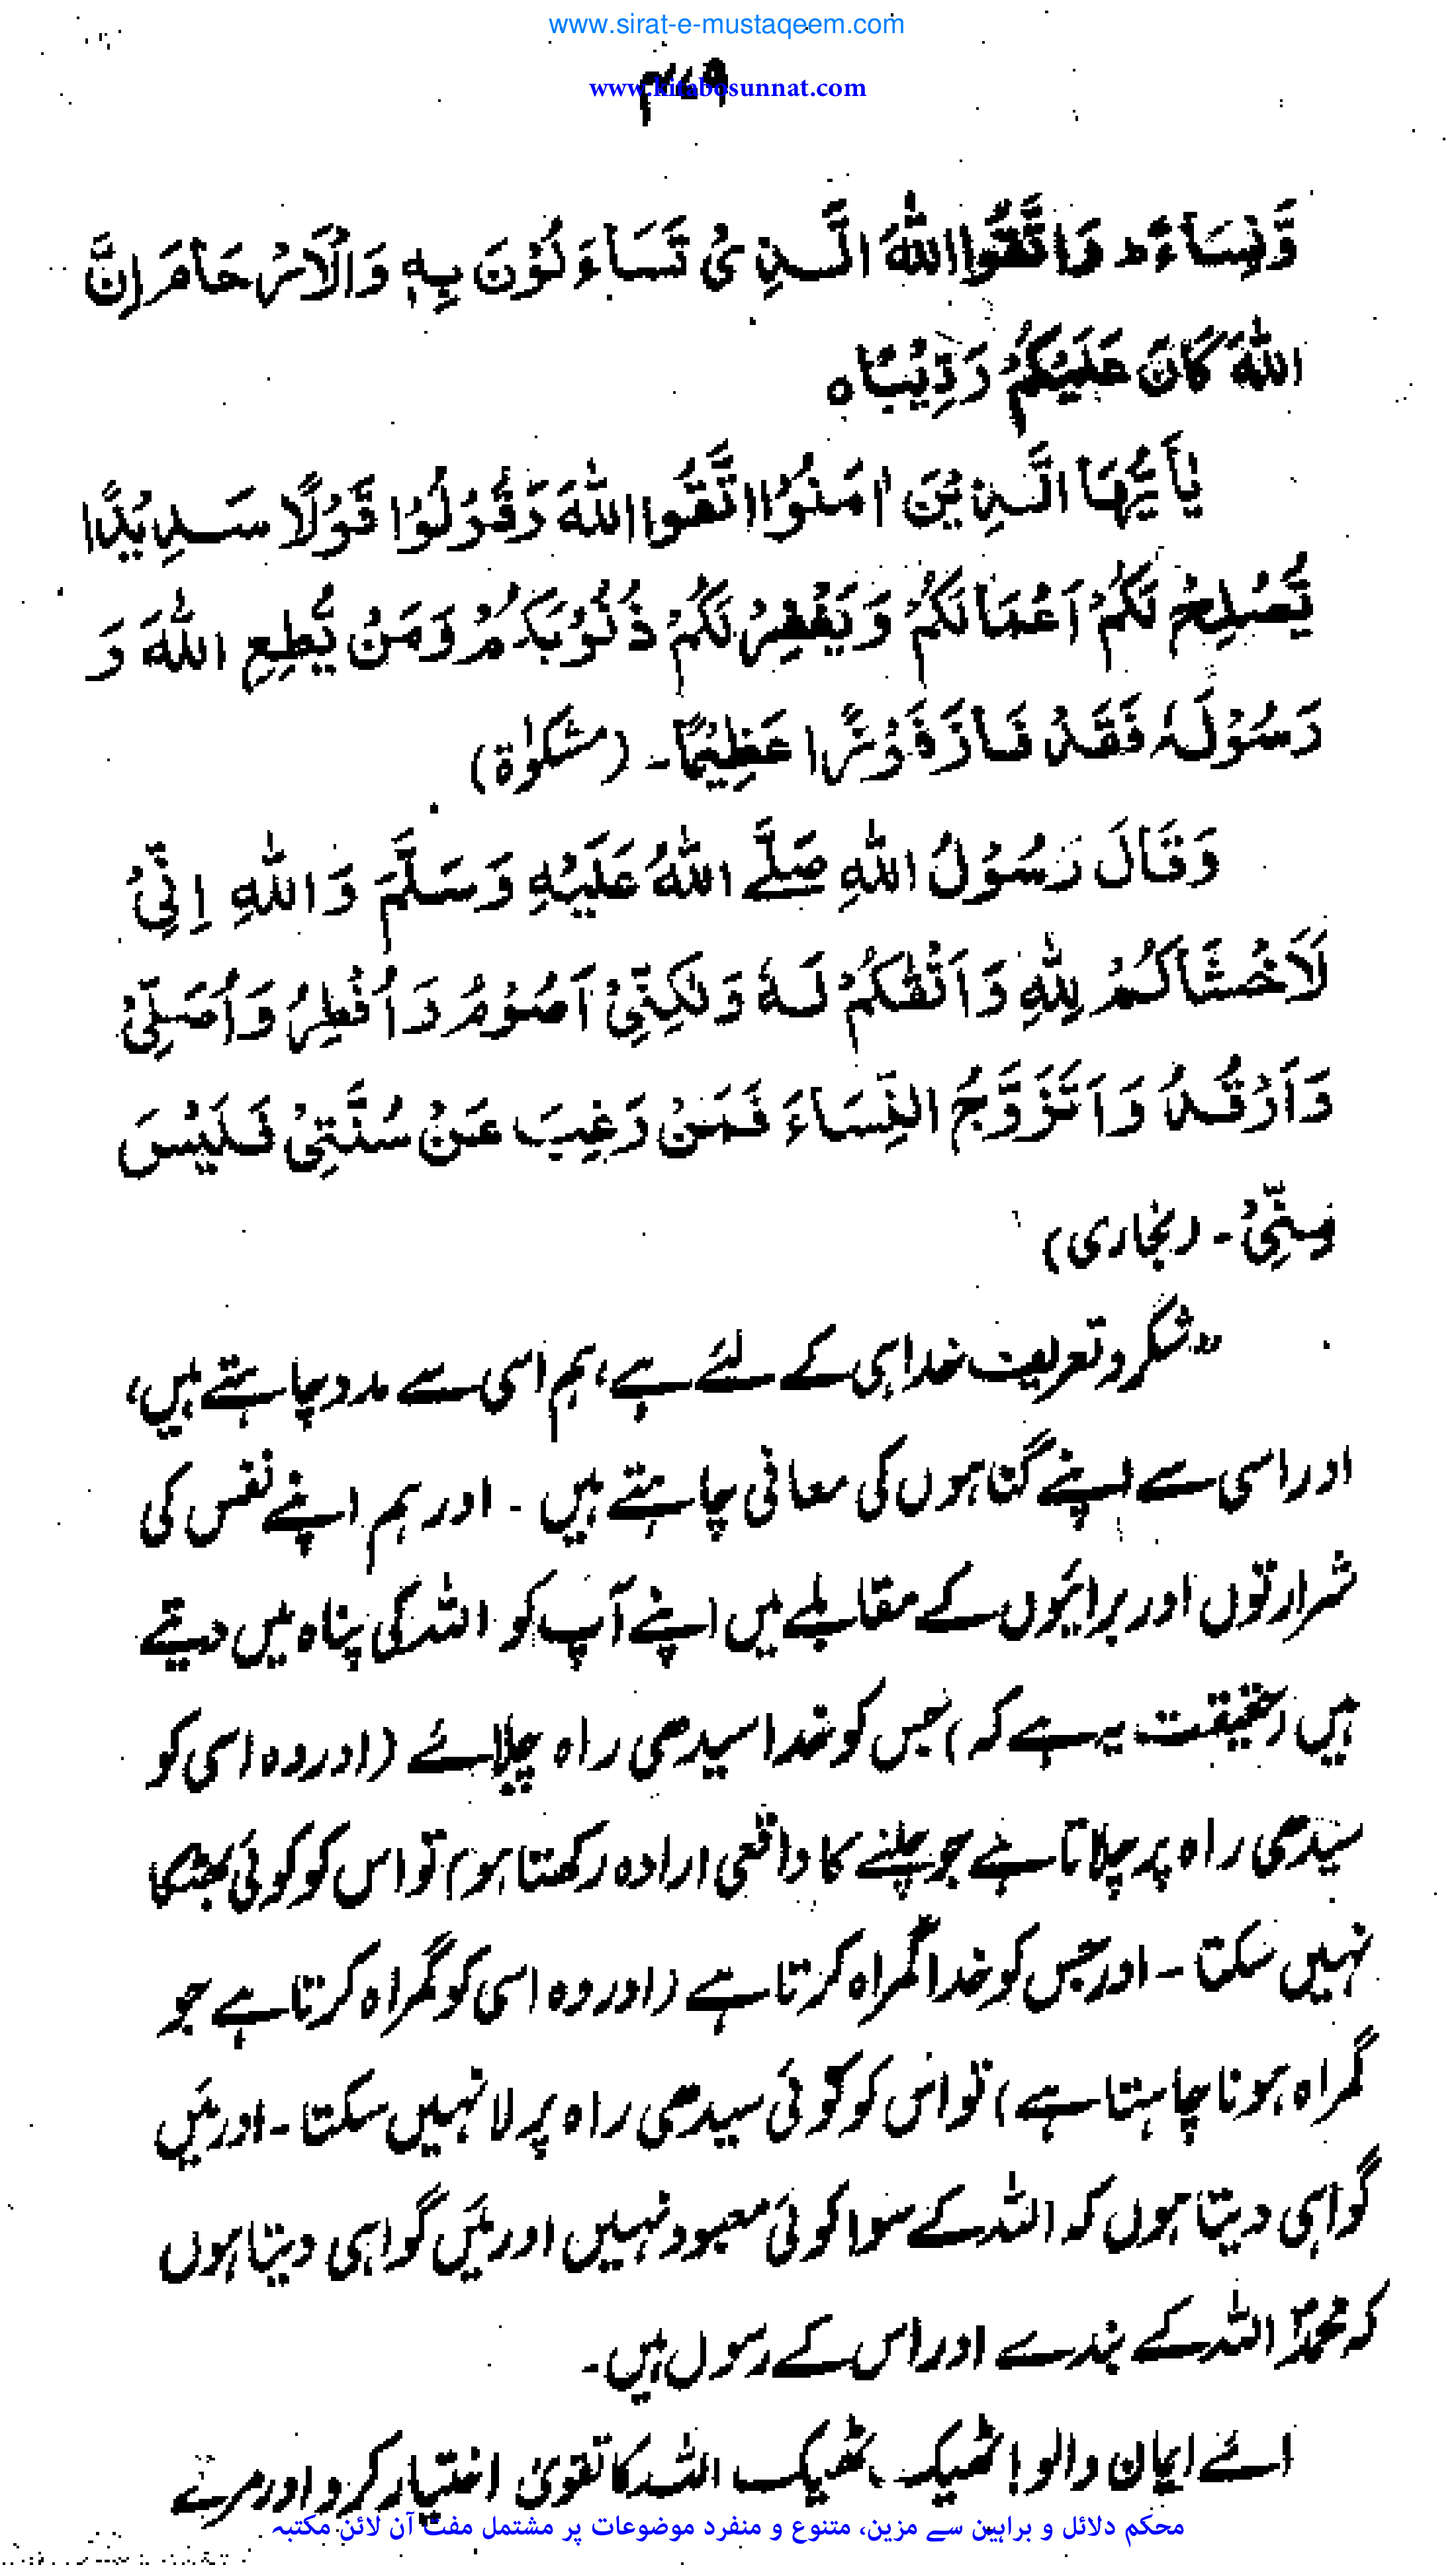 www.sirat-e-mustaqeem.com
۴۷۹
www.kitabosunnat.com
وَّنِسَاءً ط وَاتَّقُوا اللّٰهَ الَّذِیْ تَسَاءَلُوْنَ بِهٖ وَالْاَرْحَامَ اِنَّ
اللّٰهَ كَانَ عَلَيْكُمْ رَقِيْبًا ه
يٰاَيُّهَا الَّذِيْنَ اٰمَنُوْا اتَّقُوا اللّٰهَ وَقُوْلُوْا قَوْلًا سَدِيْدًا
يُّصْلِحْ لَكُمْ اَعْمَالَكُمْ وَيَغْفِرْ لَكُمْ ذُنُوْبَكُمْ وَمَنْ يُّطِعِ اللّٰهَ وَ
رَسُوْلَهٗ فَقَدْ فَازَ فَوْزًا عَظِيْمًا۔ (مشکوٰۃ)
وَقَالَ رَسُوْلُ اللّٰهِ صَلَّے اللّٰهُ عَلَيْهِ وَسَلَّمَ وَاللّٰهِ اِنِّیْ
لَاَخْشَاكُمْ لِلّٰهِ وَاَتْقٰكُمْ لَهٗ وَلٰكِنِّیْ اَصُوْمُ وَاُفْطِرُ وَاُصَلِّیْ
وَاَرْقُدُ وَاَتَزَوَّجُ النِّسَاءَ فَمَنْ رَغِبَ عَنْ سُنَّتِیْ فَلَيْسَ
مِنِّیْ۔ (بخاری)
"شکر و تعریف خدا ہی کے لئے ہے، ہم اسی سے مدد چاہتے ہیں،
اور اسی سے اپنے گناہوں کی معافی چاہتے ہیں۔ اور ہم اپنے نفس کی
شرارتوں اور برائیوں کے مقابلے میں اپنے آپ کو اللہ کی پناہ میں دیتے
ہیں (حقیقت یہ ہے کہ) جس کو خدا سیدھی راہ چلائے (اور وہ اسی کو
سیدھی راہ پر چلاتا ہے جو چلنے کا واقعی ارادہ رکھتا ہو) تو اس کو کوئی بھٹکا
نہیں سکتا۔ اور جس کو خدا گمراہ کرتا ہے (اور وہ اسی کو گمراہ کرتا ہے جو
گمراہ ہونا چاہتا ہے) تو اس کو کوئی سیدھی راہ پر لا نہیں سکتا۔ اور میَں
گواہی دیتا ہوں کہ اللہ کے سوا کوئی معبود نہیں اور میَں گواہی دیتا ہوں
کہ محمدؐ اللہ کے بندے اور اس کے رسول ہیں۔
اے ایمان والو! ٹھیک ٹھیک اللہ کا تقویٰ اختیار کرو اور مرتے
محکم دلائل و براہین سے مزین، متنوع و منفرد موضوعات پر مشتمل مفت آن لائن مکتبہ